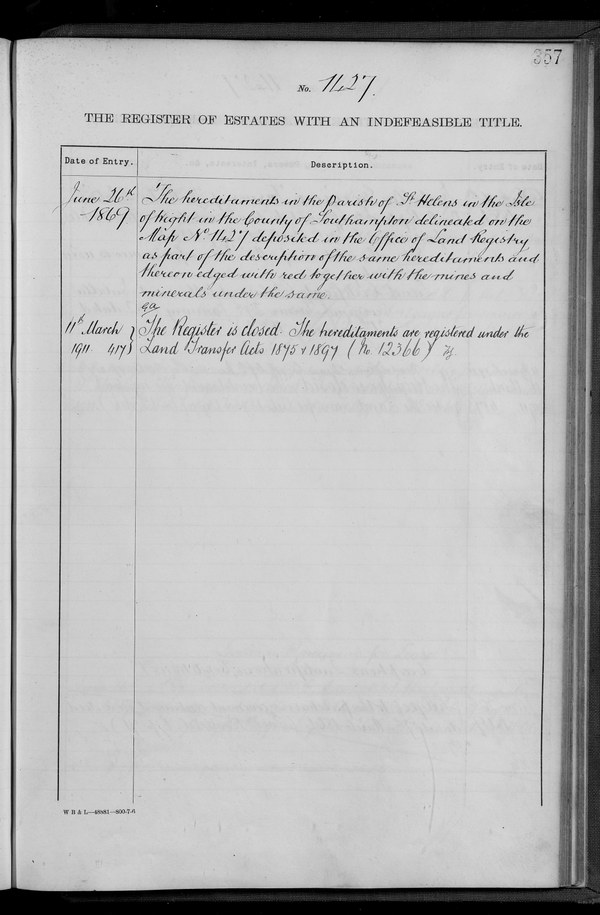 357
No. 1427.
THE REGISTER OF ESTATES WITH AN INDEFEASIBLE TITLE.
Date of Entry. Description.
June 26th The hereditaments in the Parish of St Helens in the Isle
1869 of Wight in the County of Southampton delineated on the
Map No 1427 deposited in the Office of Land Registry
as part of the description of the same hereditaments and
thereon edged with red together with the mines and
minerals under the same.
11th March } The Register is closed. The hereditaments are registered under the
1911. 417 } Land Transfer Acts 1875 & 1897 (No 12366)
W B & L—46881—800-7-6